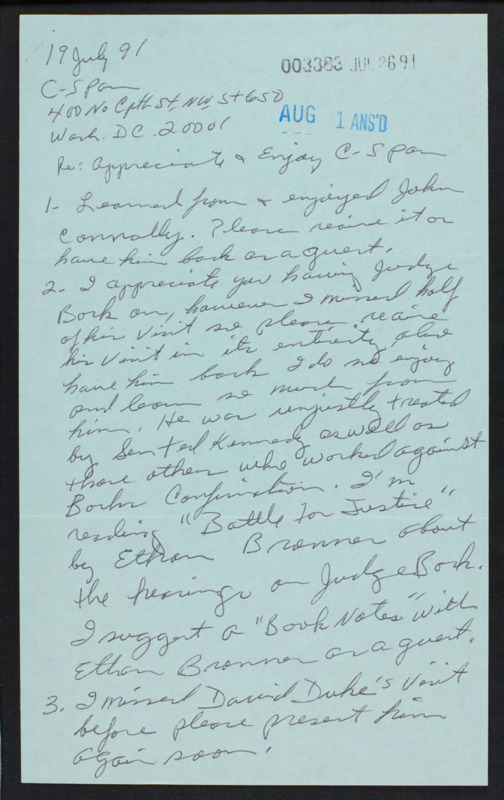 19 July 91
003383 JUL 26 91
C-Span
400 No Cptl St, NW, St 650
AUG 1 ANS'D
Wash. DC. 20001
Re: Appreciate & Enjoy C-Span
1- Learned from & enjoyed John
Connally. Please reaire it or
have him back as a guest.
2- I appreciate you having Judge
Bork on, however I missed half
of his visit so please, reaire
his visit in its entirety, also
have him back I do so enjoy
and learn so much from
him. He was unjustly treated
by Sen Ted Kennedy as well as
those others who worked against
Borks Confirmation. I'm
reading "Battle For Justice"
by Ethan Bronner about
the hearings on Judge Bork.
I suggest a "Book Notes" with
Ethan Bronner as a guest.
3. I missed David Duke's visit
before please present him
again soon!